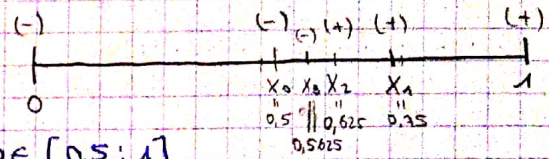 (-) (-) (-) (+) (+) (+)
0 x₀ x₃ x₂ x₁ 1
" || " "
0,5 0,625 0,75
0,5625
[0,5; 1]